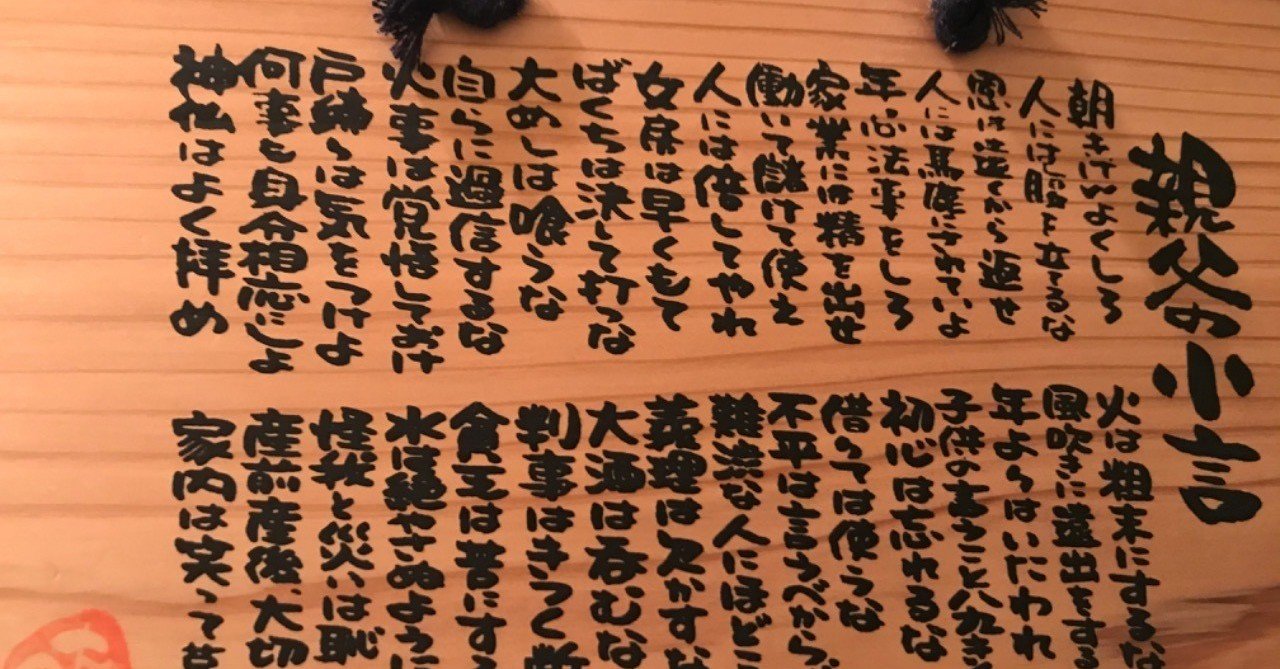 親父の小言
朝きげんよくしろ
人には腹を立てるな
恩は遠くから返せ
人には馬鹿にされていよ
年忌法事をしろ
家業には精を出せ
働いて儲けて使え
人には倍してやれ
女房は早くもて
ばくちは決して打つな
大めしは喰うな
自らに過信するな
火事は覚悟しておけ
戸締りは気をつけよ
何事も身分相応にしよ
神仏はよく拝め
火は粗末にするな
風吹きに遠出をする
年よりはいたわれ
子供の言うこと八九き
初心は忘れるな
借りては使うな
不平は言うべから
難渋な人にほどこ
義理は欠かすな
大酒は呑むな
判事はきつく断
貧乏は苦にす
水は絶やさぬように
怪我と災いは恥
産前産後、大切
家内は笑って